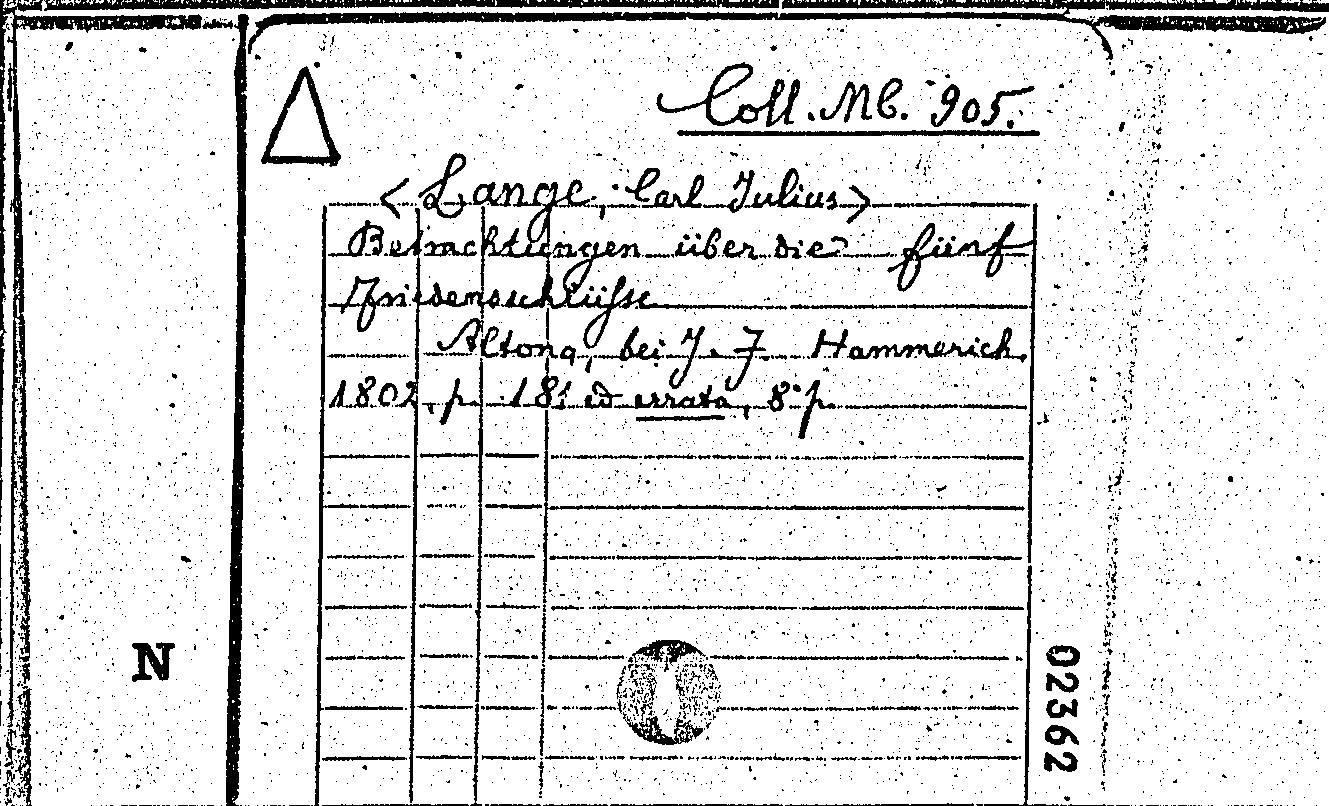 Coll. MC. 905.
< Lange, Carl Julius >
Betrachtungen über die fünf
Friedensschlüsse
Altona, bei J. F. Hammerich.
1802, p. 181 ed errata, 8° p.
N
02362